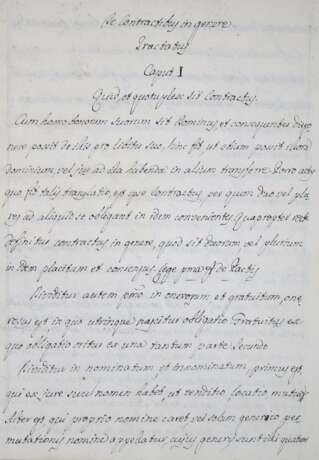 De Contractibus in genere
Tractatus
Caput I
Quid, et quotuplex sit Contractus.
Cum homo bonorum suorum sit Dominus, et consequenter dispo-
nere possit de illis pro libitu suo, hinc fit ut etiam possit illorum
dominium vel jus ad illa habenda in alium transferre. Porro actus
quo fit talis translatio, est ipse Contractus per quem duo vel plu-
res ad aliquid se obligant in idem convenientes. Quapropter recte
definitur contractus in genere, quod sit duorum vel plurium
in idem placitum et consensus lege de Pactis
Dividitur autem primo in onerosum et gratuitum, one-
rosus est in quo utrinque nascitur obligatio Gratuitus ex
quo obligatio oritur ex una tantum parte Secundo
Dividitur in nominatum et innominatum, primus est,
qui ex jure suum nomen habet, ut venditio locatio, mutuum
Alter est, qui proprio nomine caret vel solum generico per-
mutationis nomine appelatur, cujus generis sunt illi quatuor